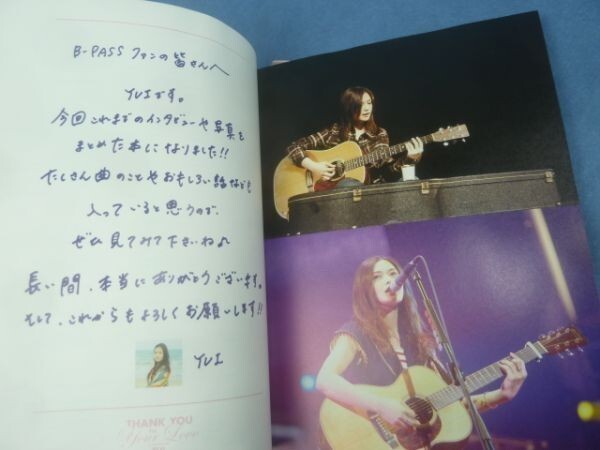 B-PASS ファンの皆さんへ
YUIです。
今回これまでのインタビューや写真を
まとめた本になりました!!
たくさん曲のことやおもしろい話なども
入っていると思うので、
ぜひ見てみて下さいね♪
長い間、本当にありがとうございます。
そして、これからもよろしくお願いします!!
YUI
THANK YOU
Your Love